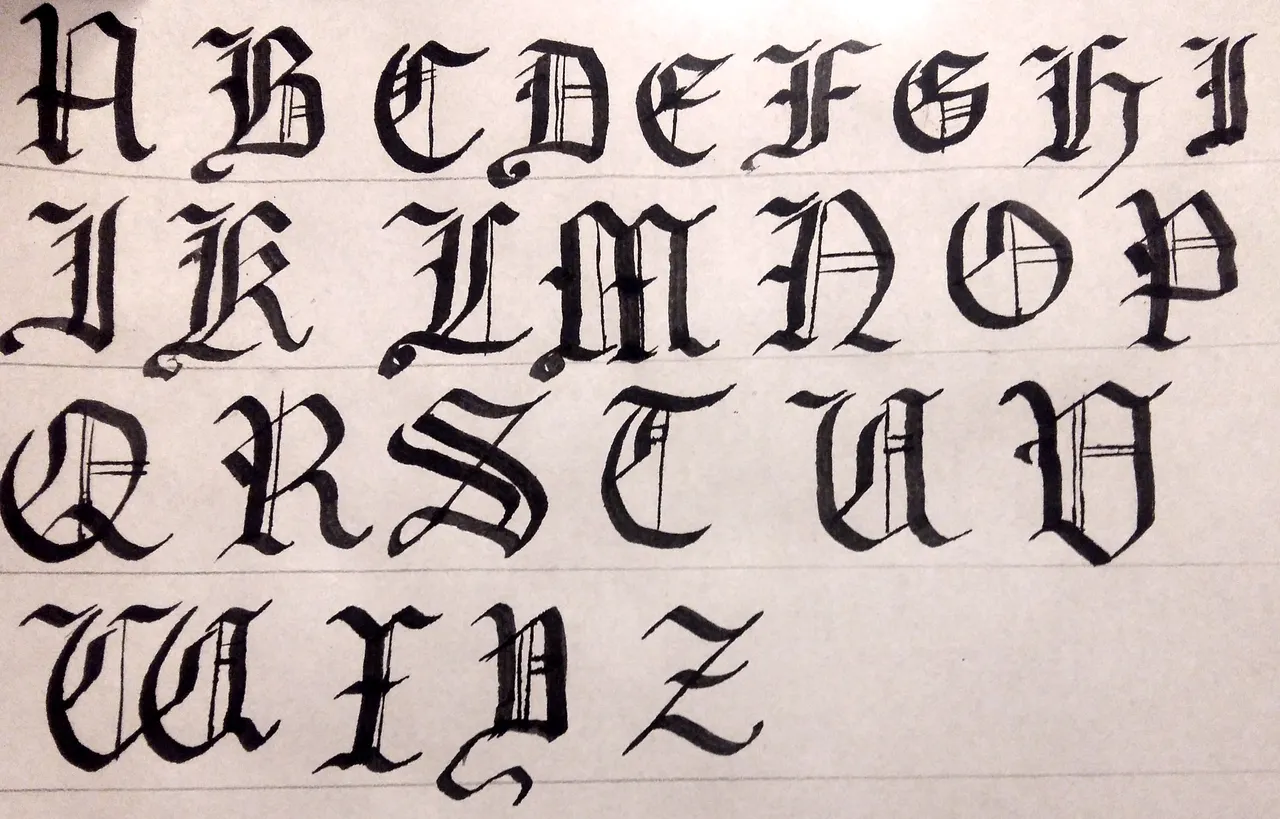 A B C D E F G H I
J K L M N O P
Q R S T U V
W X Y Z